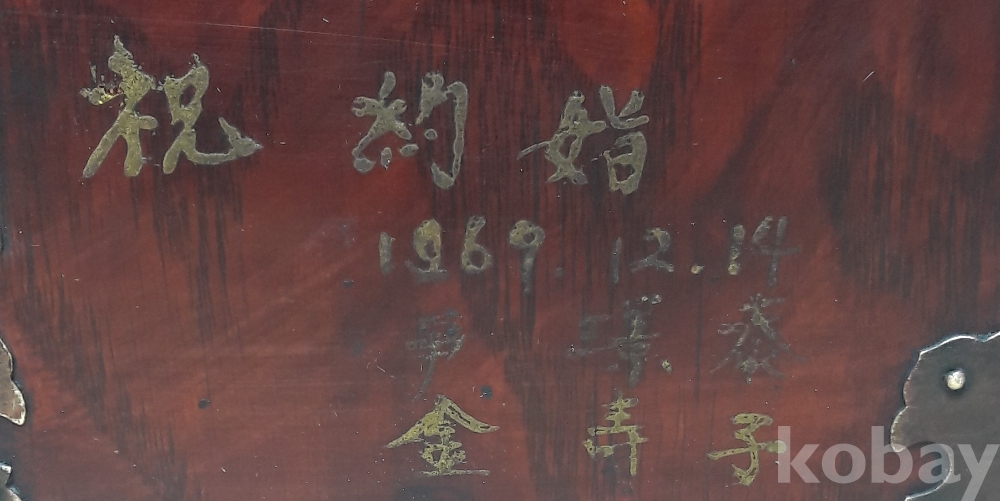 祝 約婚
1969.12.14
尹
金 子
kobay